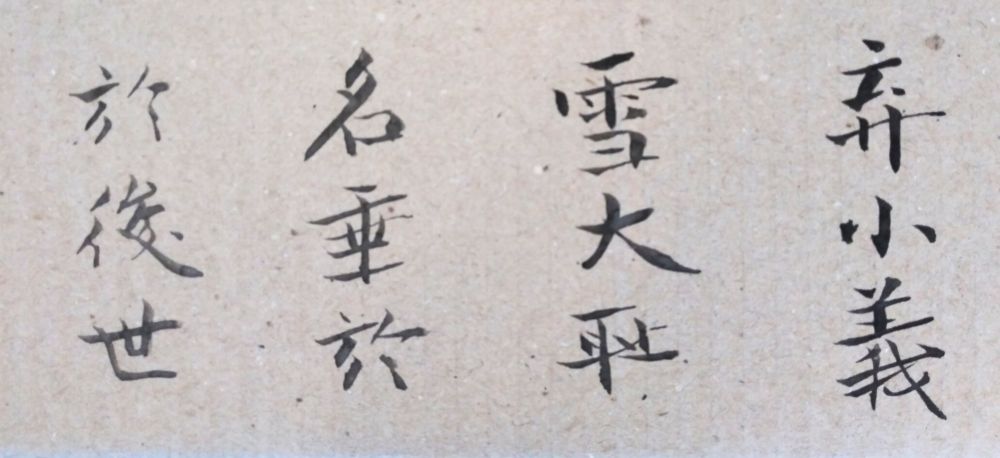 弃小義
雪大耻
名垂於
於後世